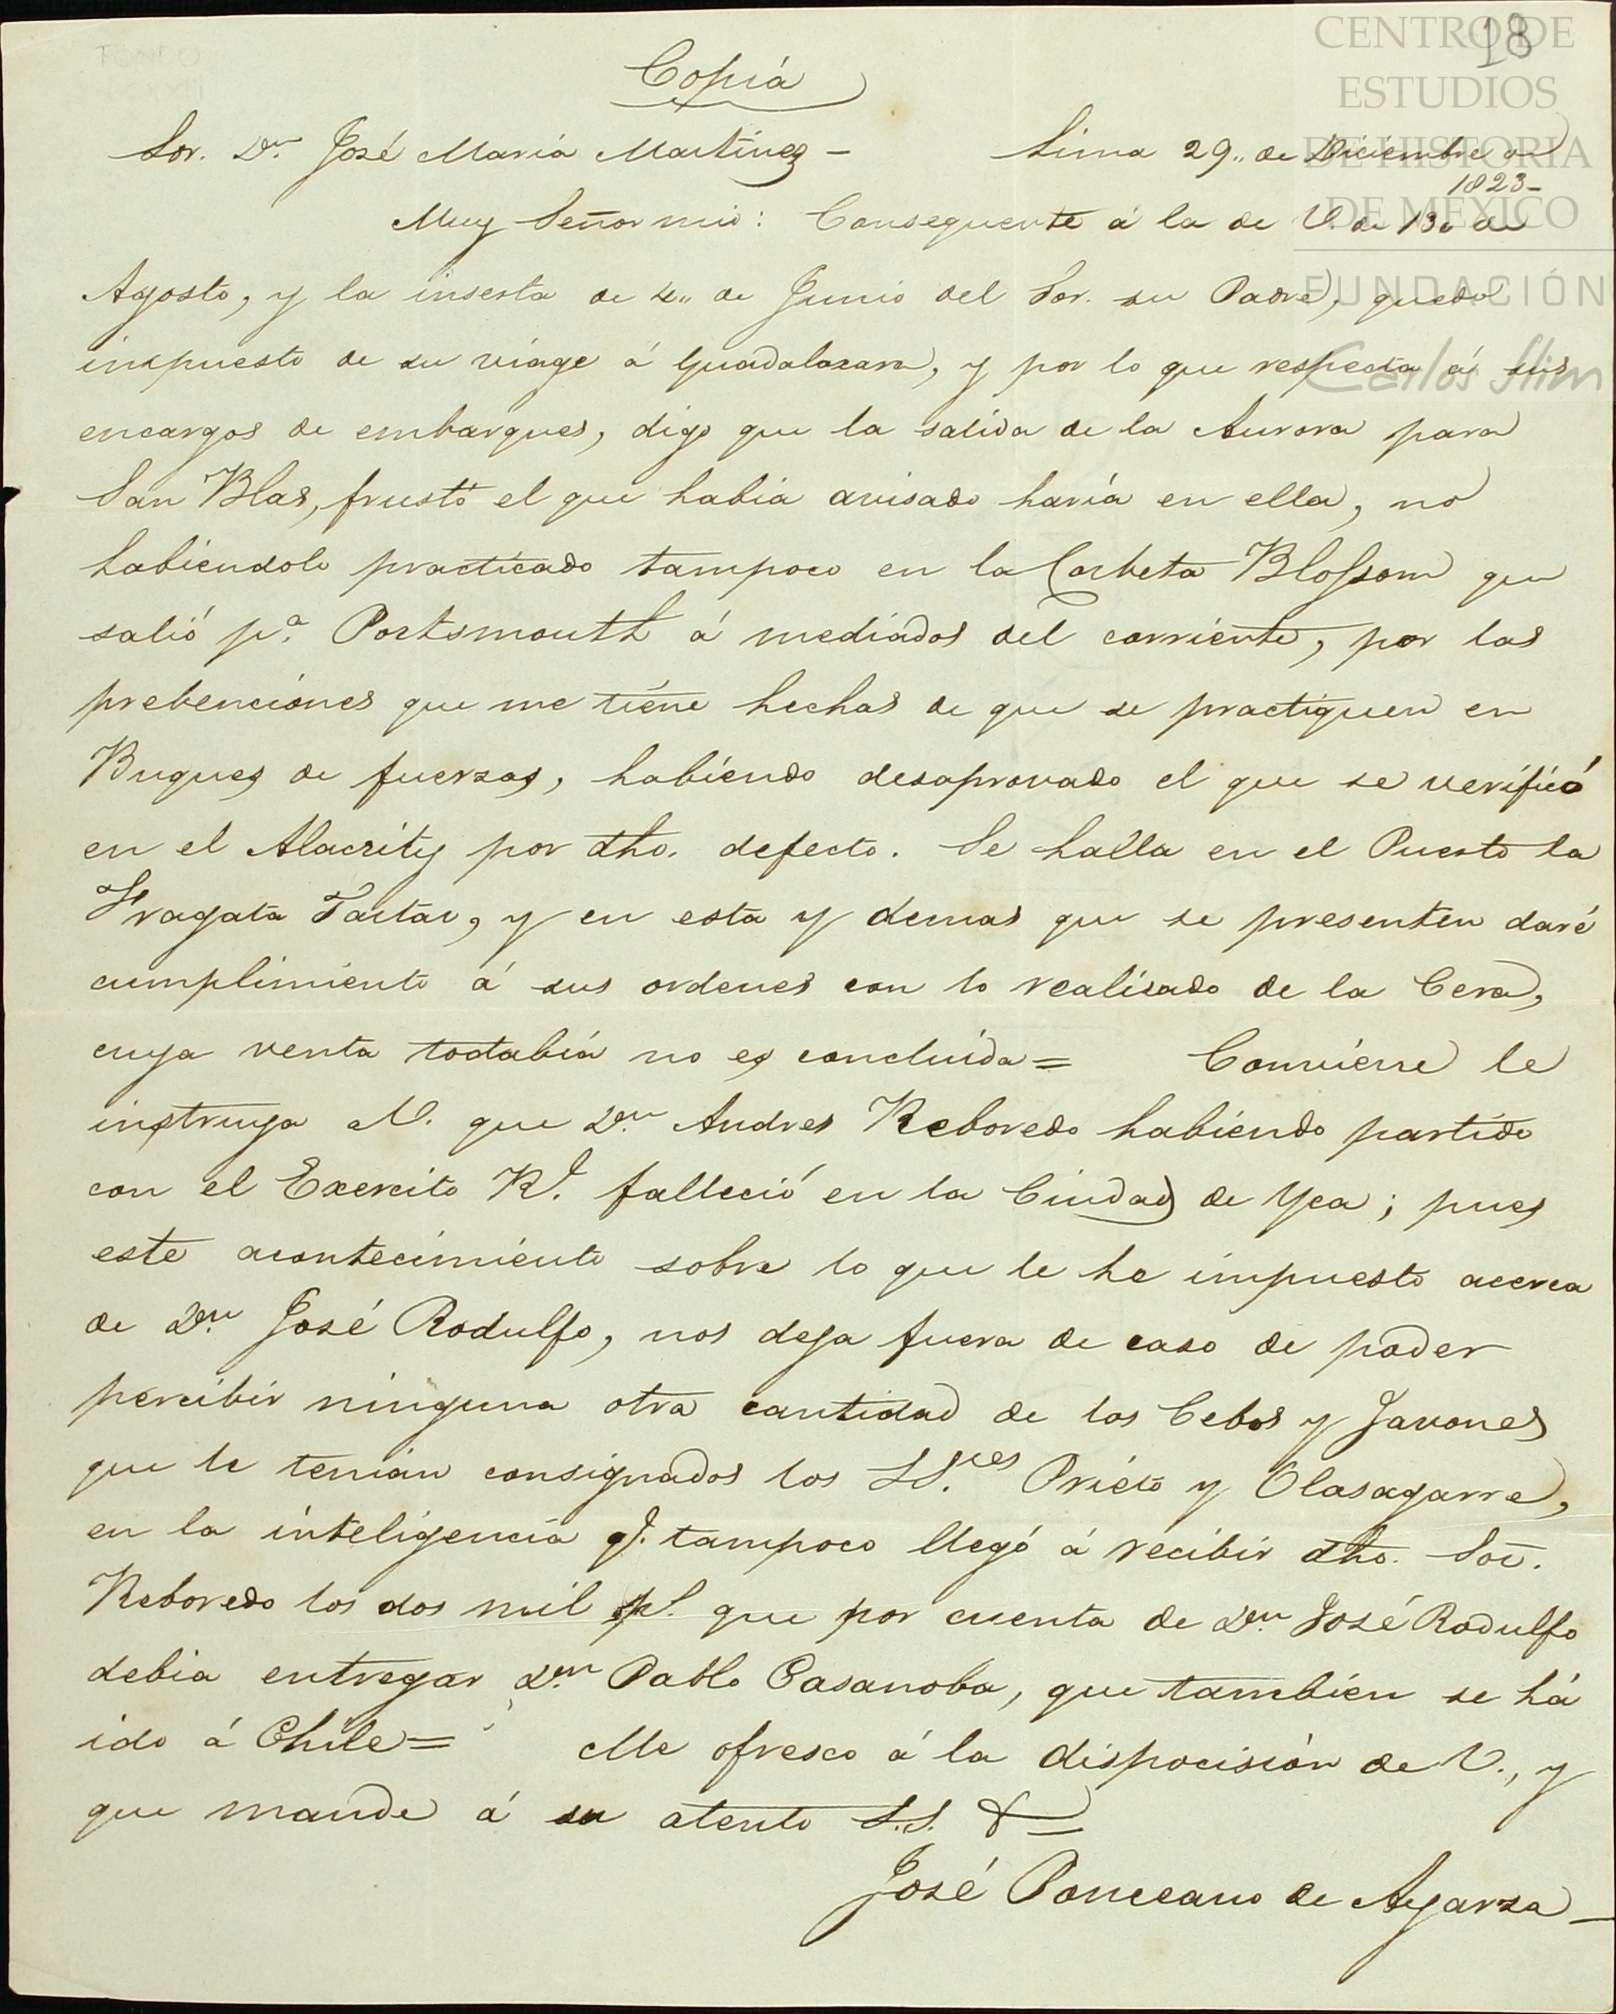 18
CENTRO DE
ESTUDIOS
DE HISTORIA
DE MÉXICO
FUNDACIÓN
Carlos Slim
Copia
Sor. Dn. José Maria Martinez – Lima 29,, de Diciembre de
1823–
Muy Señor mio: Consequente á la de V. de 13,, de
Agosto, y la inserta de 4,, de Junio del Sor. su Padre, quedo
inspuesto de su viage á Guadalaxara, y por lo que respecta á sus
encargos de embarques, digo que la salida de la Aurora para
San Blas, frustó el que habia avisado haría en ella, no
habiendolo practicado tampoco en la Corbeta Blossom que
salió pa. Portsmouth á mediados del corriente, por las
prebenciones que me tiene hechas de que se practiquen en
Buques de fuerzas, habiendo desaprovado el que se verificó
en el Alacrity por dho. defecto. Se halla en el Puerto la
Fragata Tartar, y en esta y demas que se presenten daré
cumplimiento á sus ordenes con lo realisado de la Cera,
cuya venta todabia no es concluida= Conviene le
instruya V. que Dn. Andres Reboredo habiendo partido
con el Exercito Rl. falleció en la Ciudad de Yca; pues
este acontecimiento sobre lo que le he impuesto acerca
de Dn. José Rodulfo, nos deja fuera de caso de poder
percibir ninguna otra cantidad de los Cebos y Javones
que le tenian consignados los SS.res Prieto y Olasagarre,
en la inteligencia q. tampoco llegó á recibir dho. Sor.
Reboredo los dos mil ps. que por cuenta de Dn. José Rodulfo
debia entregar Dn. Pablo Casanoba, que tambien se há
ido á Chile= Me ofresco á la dispocisión de V., y
que mande á su atento S.S. &=
José Ponceano de Ayarza–